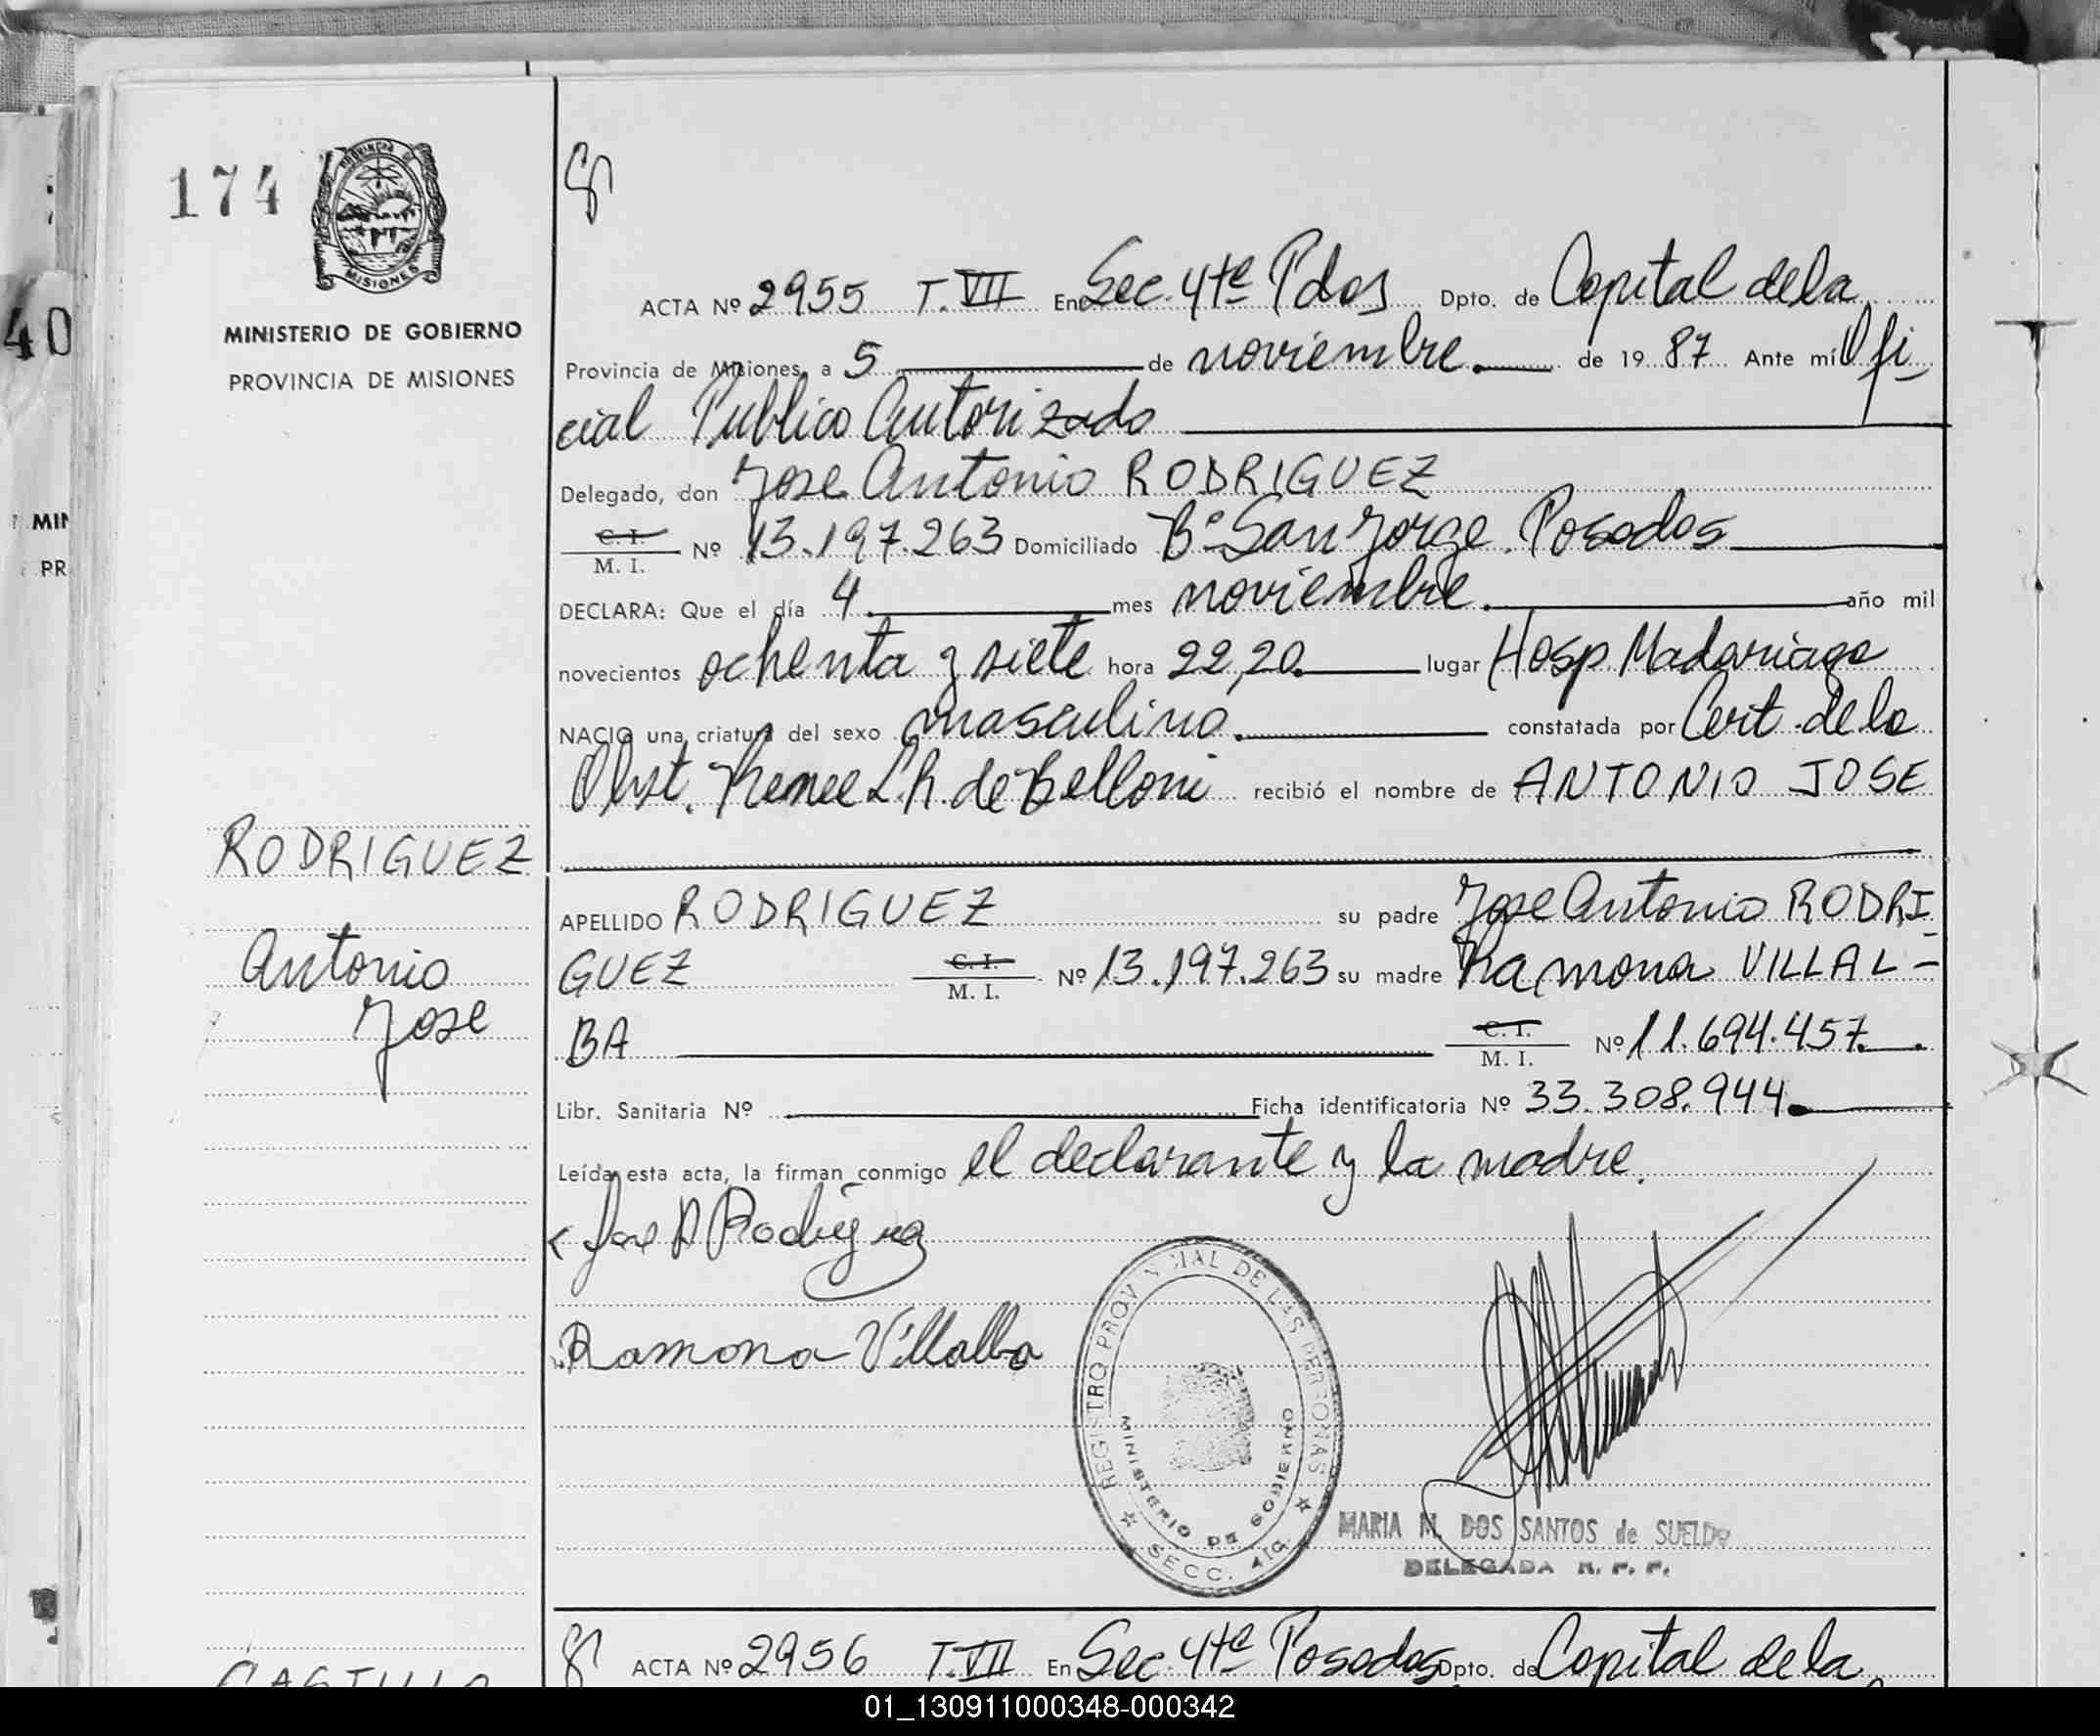 174
PROVINCIA DE
MISIONES
MINISTERIO DE GOBIERNO
PROVINCIA DE MISIONES
40
MIN
PR
RODRIGUEZ
Antonio
Jose
ACTA Nº 2955 T. VII En Sec. 4ta Pdas Dpto. de Capital de la
Provincia de Misiones, a 5 de noviembre de 19 87 Ante mí Ofi-
cial Publico Autorizado
Delegado, don Jose Antonio RODRIGUEZ
C. I.
M. I. Nº 13.197.263 Domiciliado Bº San Jorge. Posadas
DECLARA: Que el día 4 mes noviembre año mil
novecientos ochenta y siete hora 22,20 lugar Hosp Madariaga
NACIO una criatura del sexo masculino constatada por Cert. de la
Obst. Renee L.R. de Belloni recibió el nombre de ANTONIO JOSE
APELLIDO RODRIGUEZ su padre Jose Antonio RODRI-
GUEZ C. I.
M. I. Nº 13.197.263 su madre Ramona VILLAL-
BA C. I.
M. I. Nº 11.694.457
Libr. Sanitaria Nº Ficha identificatoria Nº 33.308.944
Leída esta acta, la firman conmigo el declarante y la madre.
Jose A Rodriguez
Ramona Villalba
REGISTRO PROVINCIAL DE LAS PERSONAS
MINISTERIO DE GOBIERNO
SECC. 4ta.
MARIA M. DOS SANTOS de SUELDO
DELEGADA R. P. P.
CASTILLO
ACTA Nº 2956 T. VII En Sec. 4ta Posadas Dpto. de Capital de la
01_130911000348-000342